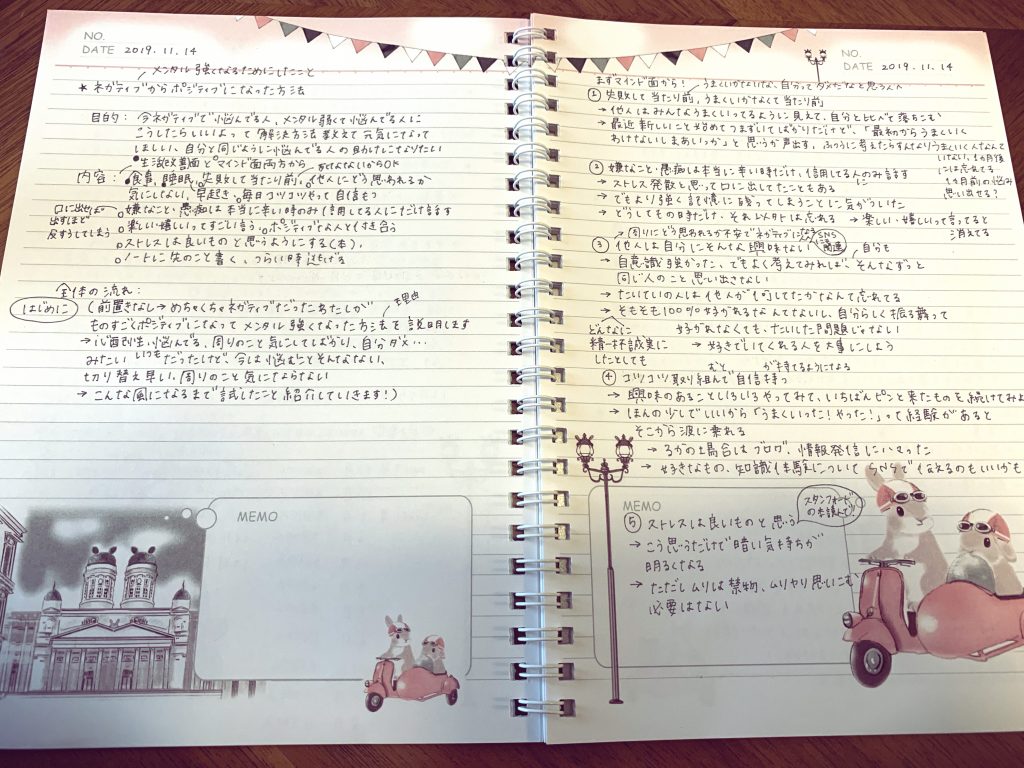 NO.
DATE 2019.11.14
メンタル強くなるためにしたこと
★ ネガティブからポジティブになった方法
目的：今ネガティブで悩んでる人、メンタル弱くて悩んでる人に
こうしたらいいよって解決方法教えて元気になって
ほしい、自分と同じように悩んでる人の助けしたい
生活改善面とマインド面両方から
内容：食事、睡眠、失敗して当たり前、他人にどう思われるか
気にしない、早起き、毎日コツコツやって自信もつ
口に出せば
出すほど
反すうしてしまう
嫌なこと・愚痴は本当に辛い時のみ信用してる人にだけ話す
楽しい嬉しいってすごい言う、ポジティブな人と付き合う
ストレスは良いものと思うようにする（本）、
ノートに先のこと書く、つらい時逃げる
全体の流れ：
はじめに
（前置きなし→めちゃくちゃネガティブだったあたしが
理由
ものすごくポジティブになってメンタル強くなった方法を説明します
→心配性、悩んでる、周りのこと気にしてばかり、自分が✕…
みたいいつもだったけど、今は悩むことそんなない、
切り替え早い、周りのこと気にならない
→こんな風になるまで試したこと紹介していきます！）
MEMO
NO.
DATE 2019.11.14
まずマインド面から！
うまくいかないな、自分ってダメだなと思う人へ
① 失敗して当たり前、うまくいかなくて当たり前
→他人はみんなうまくいってるように見えて、自分と比べて落ちこむ
→最近新しいこと始めてつまずいてばかりだけど、「最初からうまくいく
わけないしまあいっか」と思うか声出す、ふつうに考えたらすんなりうまくいく人なんて
いない、1カ月後
には忘れてる
1カ月前の悩み
思い出せる？
② 嫌なこと・愚痴は本当に辛い時だけ、信用してる人のみ話す
→ストレス発散と思って口に出してたこともある
→でもより強く記憶に残ってしまうことに気がついた
→どうしてもの時だけ、それ以外は忘れる
→楽しい・嬉しいって言ってると
消えてる
周りにどう思われるか不安でネガティブになる
SNS
に関連
③ 他人は自分にそんな興味ない
自分も
→自意識強かった、でもよく考えてみれば、そんなずっと
同じ人のこと思い出さない
→たいていの人は他人が何してたかなんて忘れてる
→そもそも100%好かれるなんてないし、自分らしく振る舞って
どんなに
精一杯誠実に
したとしても
好かれなくても、たいした問題じゃない
→好きでしてくれる人を大事にしよう
④ コツコツ取り組んで自信持つ
が持てるようになる
→興味のあることいろいろやってみて、いちばんピンと来たものを続けてみよ
→ほんの少しでいいから「うまくいった！やった！」って経験があると
そこから波に乗れる
→るかの場合はブログ、情報発信にハマった
→好きなもの、知識体験についてSNSで伝えるのもいいかも
MEMO
スタンフォード
の本読んで
⑤ ストレスは良いものと思う
→こう思うだけで暗い気持ちが
明るくなる
→ただしムリは禁物、ムリヤリ思いこむ
必要はない